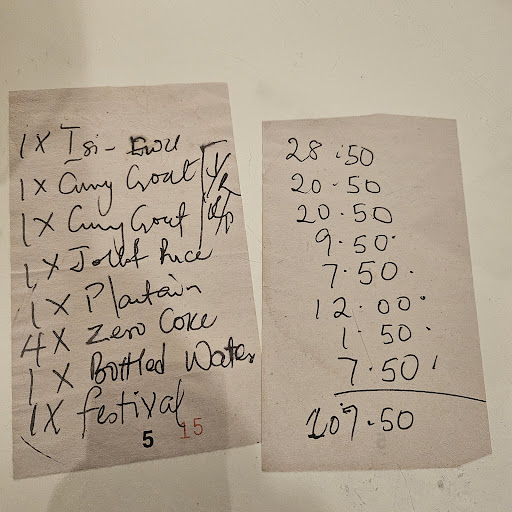 1 X Isi - Ewu
1 X Curry Goat
1 X Curry Goat
1 X Jollof Rice
1 X Plantain
4 X Zero Coke
1 X Bottled Water
1X festival
5 15
28.50
20.50
20.50
9.50
7.50
12.00
1.50
7.50
107.50